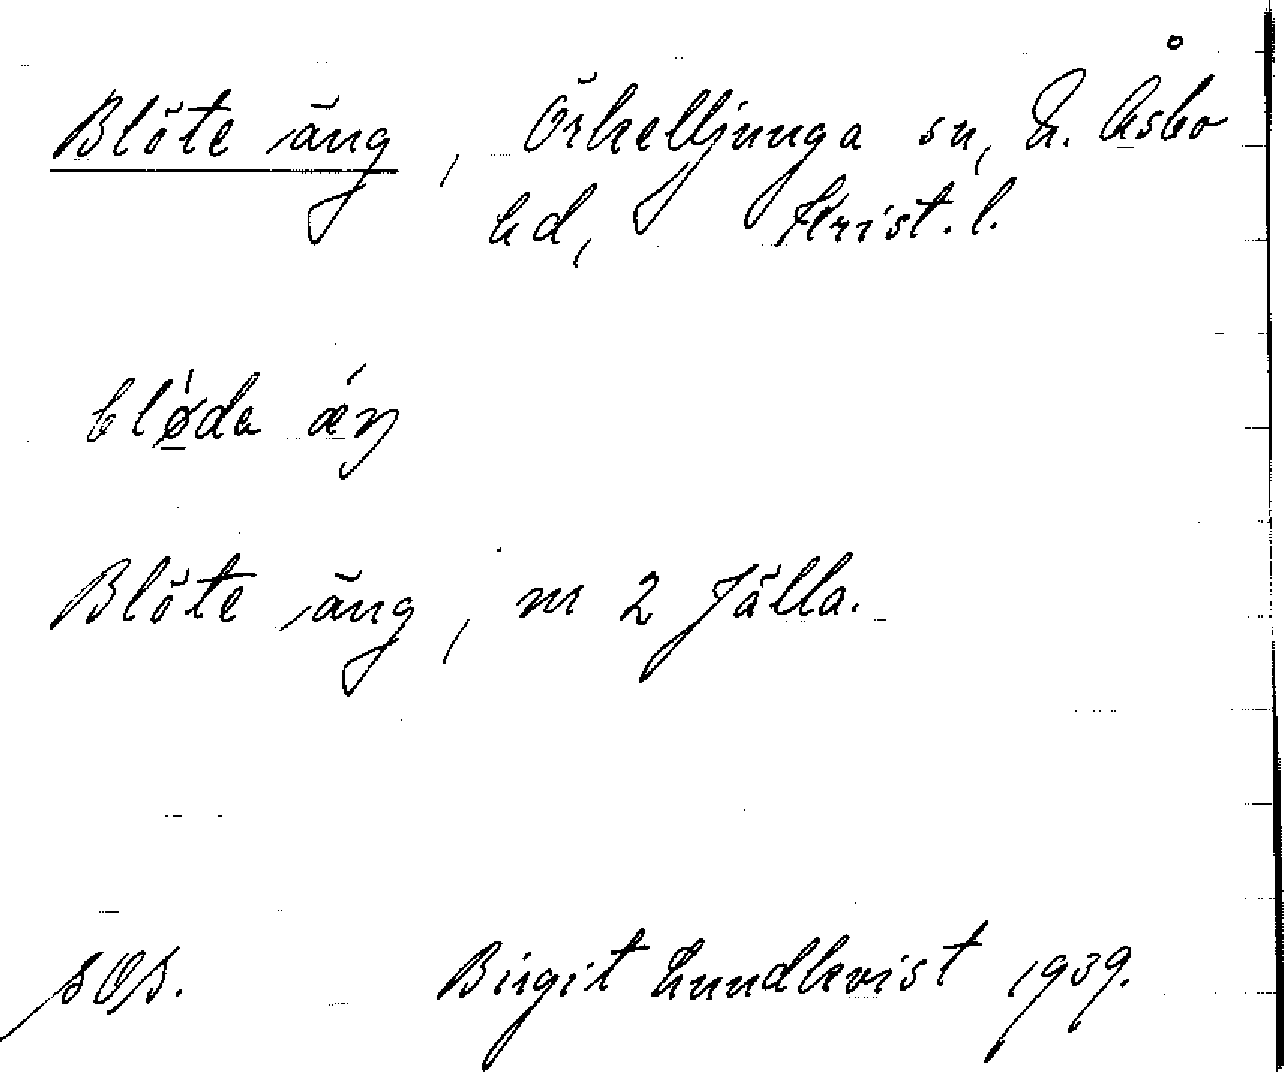 Blöte äng, Örkelljunga sn, N. Åsbo
hd, Krist. l.
blǿ̱da ǽŋ
Blöte äng, m 2 Jälla.
SOS. Birgit Lundkvist 1939.